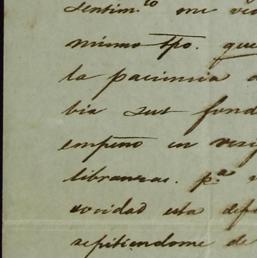 sentim.to me
mismo tpo. que
la paciencia
bia sus fund
empeño en
libranzas. p.a
vocidad esta
repitiendome de